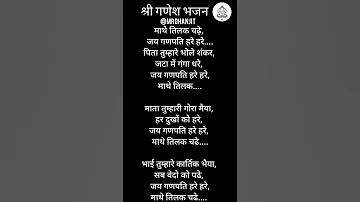 श्री गणेश भजन
@MRDHANJIT
माथे तिलक चढ़े,
जय गणपति हरे हरे....
पिता तुम्हारे भोले शंकर,
जटा में गंगा धरे,
जय गणपति हरे हरे,
माथे तिलक....
माता तुम्हारी गोरा मैया,
हर दुखों को हरे,
जय गणपति हरे हरे,
माथे तिलक चढे....
भाई तुम्हारे कार्तिक भैया,
सब वेदो को पढे,
जय गणपति हरे हरे,
माथे तिलक चढें....